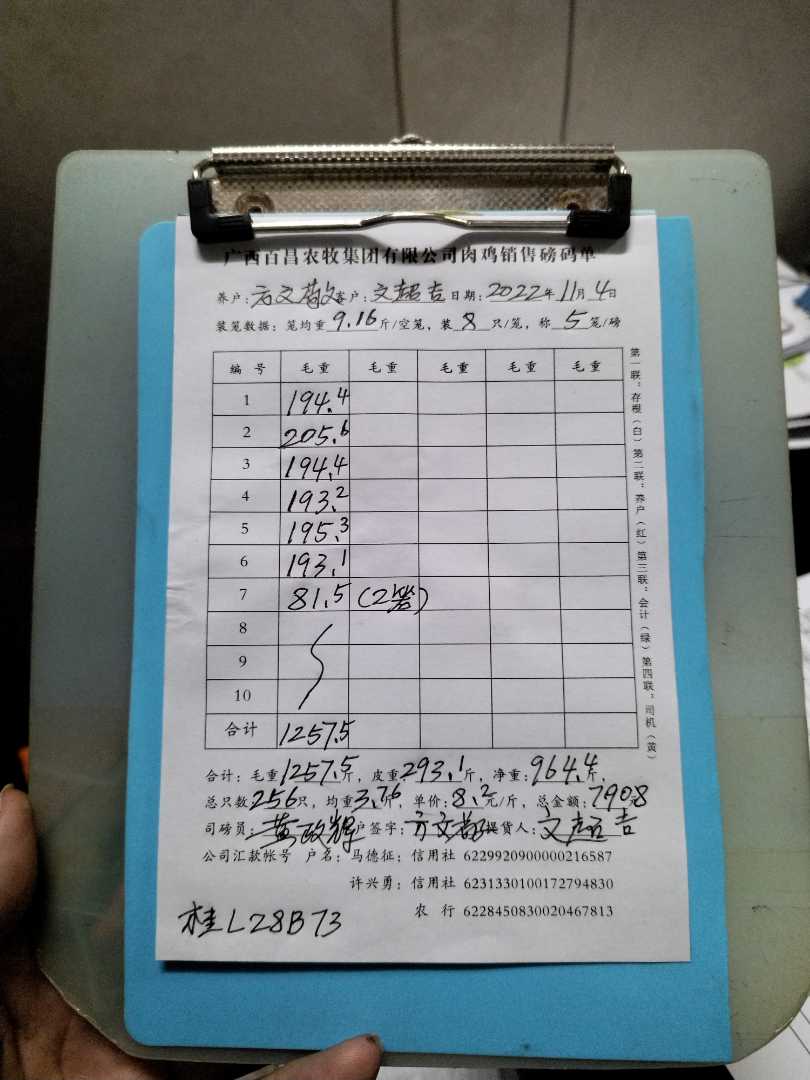 广西百昌农牧集团有限公司肉鸡销售磅码单
养户:方文敬客户:文超吉日期:2022年11月4日
装笼数据:笼均重9.16斤/空笼,装8只/笼,称5笼/磅
编号 毛重 毛重 毛重 毛重 毛重
1 194.4
2 205.6
3 194.4
4 193.2
5 195.3
6 193.1
7 81.5 (2笼)
8
9
10
合计 1257.5
合计:毛重1257.5斤,皮重:293.1斤,净重:964.4斤,
总只数256只,均重3.76斤,单价:8.2元/斤,总金额:7908元
司磅员:黄政辉 户签字:方文 提货人:文超吉
公司汇款帐号 户名:马德征:信用社 6229920900000216587
许兴勇:信用社 6231330100172794830
农行 6228450830020467813
桂L28B73
第一联:存根(白)第二联:养户(红)第三联:会计(绿)第四联:司机(黄)